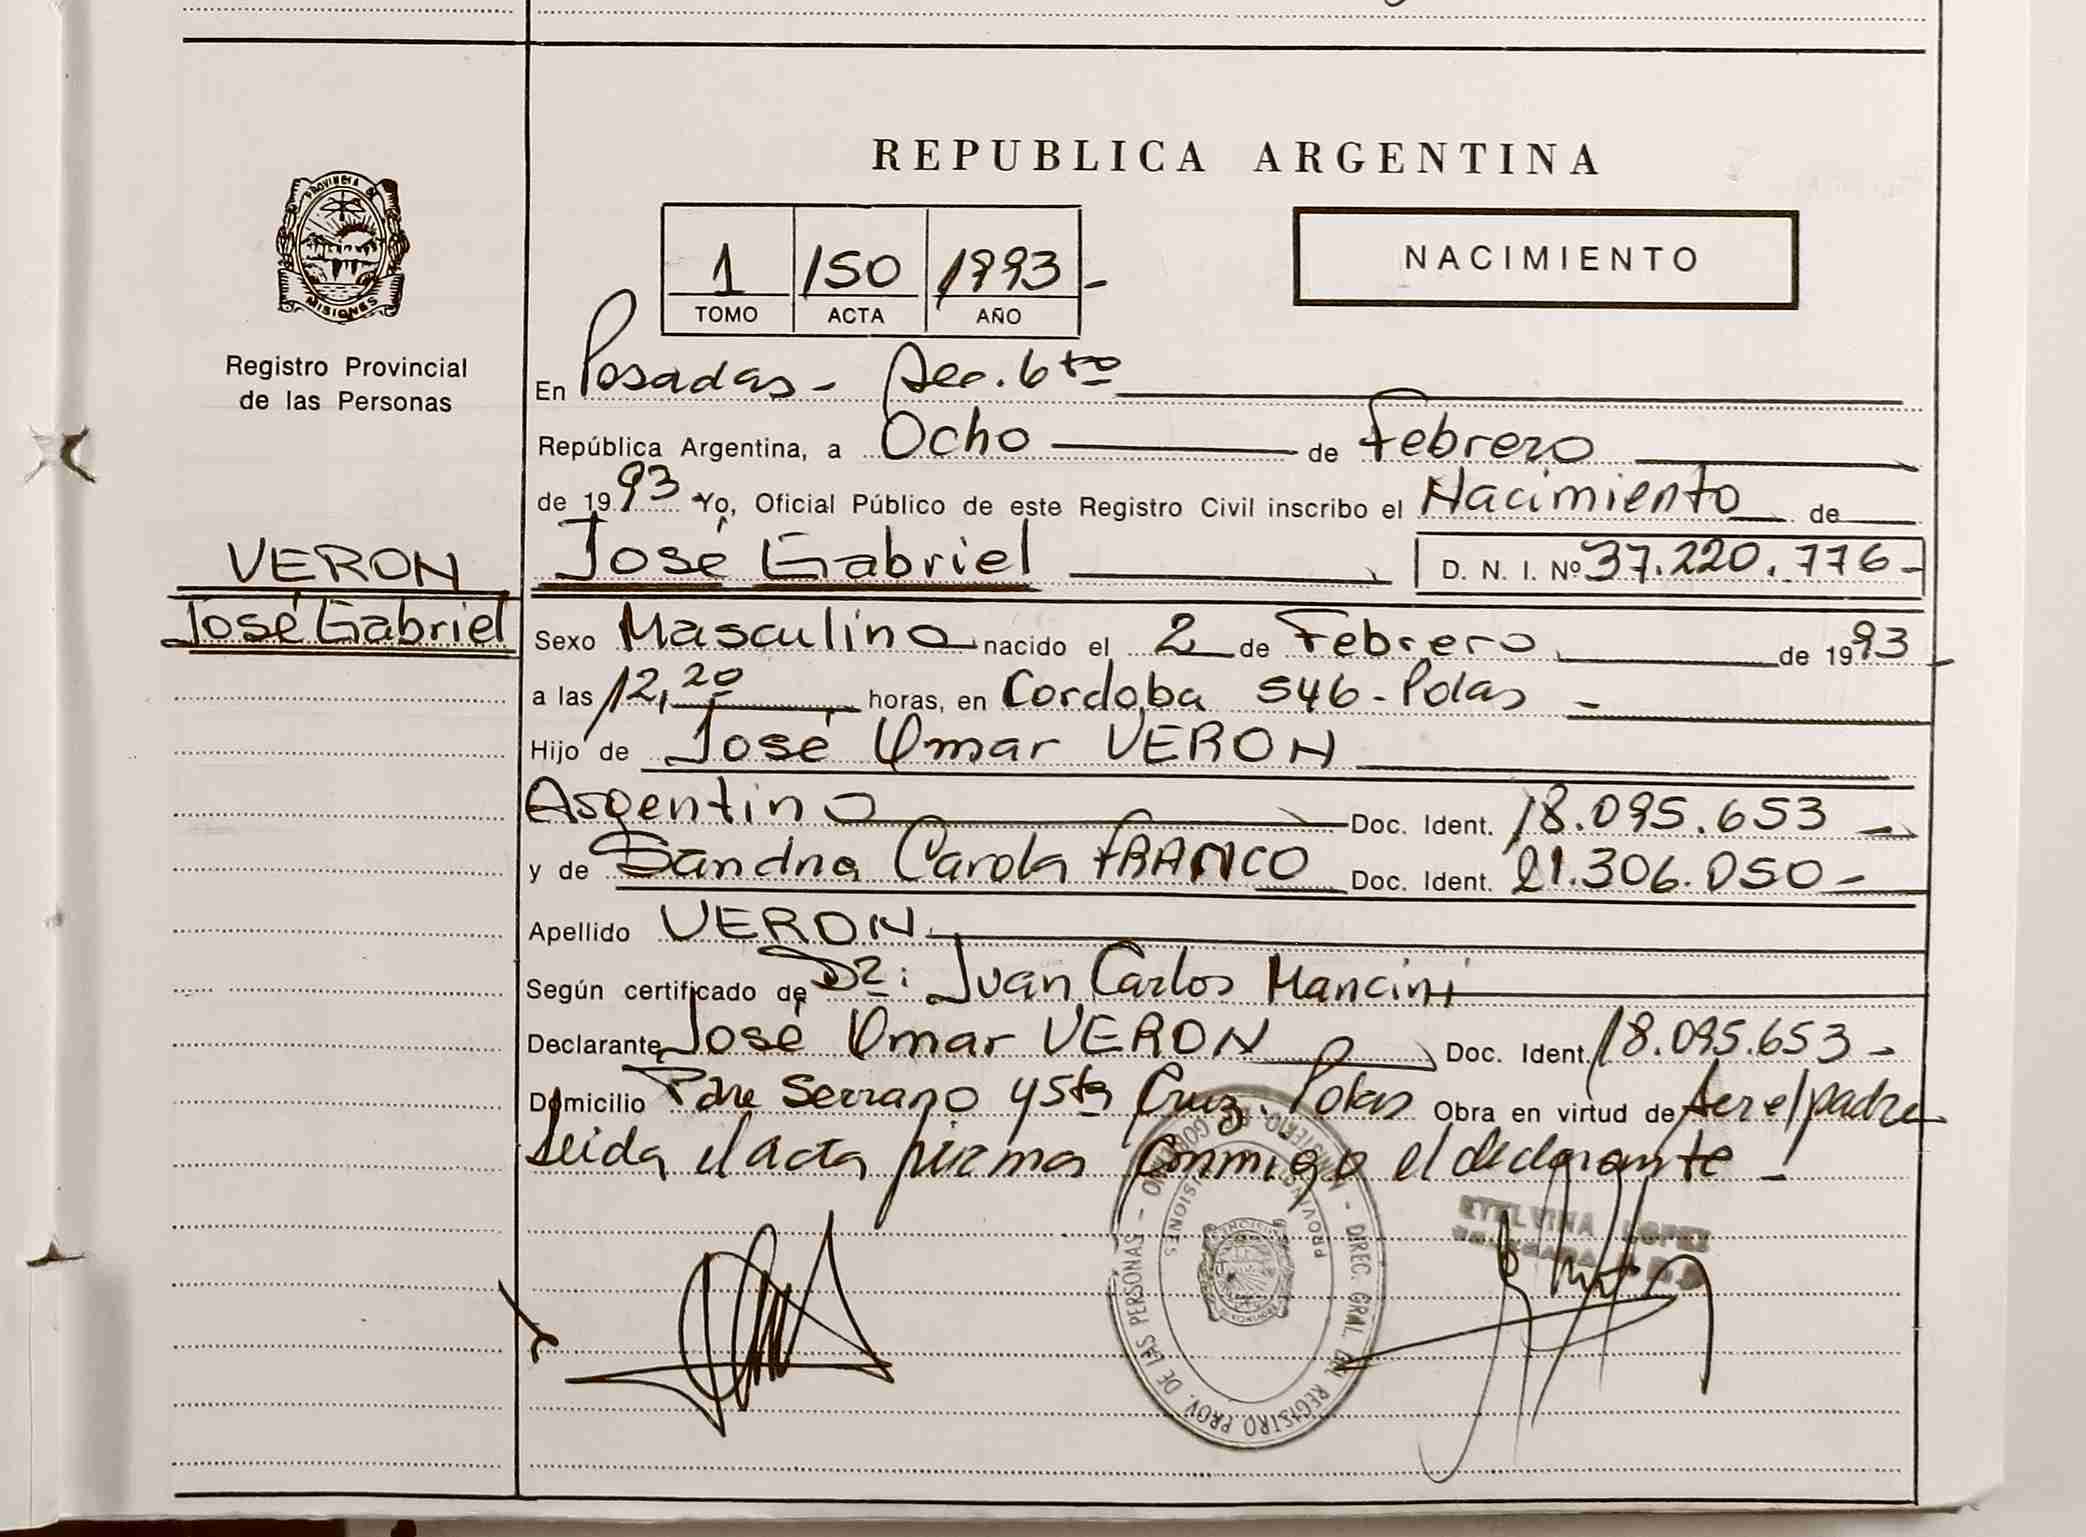 REPUBLICA ARGENTINA
PROVINCIA DE
MISIONES
Registro Provincial
de las Personas
1 150 1993 -
TOMO ACTA AÑO
NACIMIENTO
En Posadas - Sec. 6to
República Argentina, a Ocho de Febrero
de 1993 Yo, Oficial Público de este Registro Civil inscribo el Nacimiento de
VERON
José Gabriel
José Gabriel D. N. I. Nº 37.220.776-
Sexo Masculino nacido el 2 de Febrero de 1993
a las 12,20 horas, en Cordoba 546 - Pdas -
Hijo de José Omar VERON
Argentino Doc. Ident. 18.095.653
y de Sandra Carola FRANCO Doc. Ident. 21.306.050 -
Apellido VERON
Según certificado de Dr: Juan Carlos Mancini
Declarante José Omar VERON Doc. Ident. 18.095.653 -
Domicilio Pdre Serrano y Sta Cruz. Pdas Obra en virtud de ser el padre
Leida el acta firma conmigo el declarante -
MINISTERIO DE GOBIERNO - DIREC. GRAL. DEL REGISTRO PROV. DE LAS PERSONAS -
PROVINCIA
MISIONES
ETELVINA LOPEZ